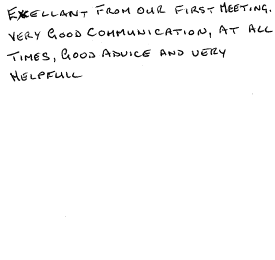 EXELLANT FROM OUR FIRST MEETING.
VERY GOOD COMMUNICATION, AT ALL
TIMES, GOOD ADVICE AND VERY
HELPFULL